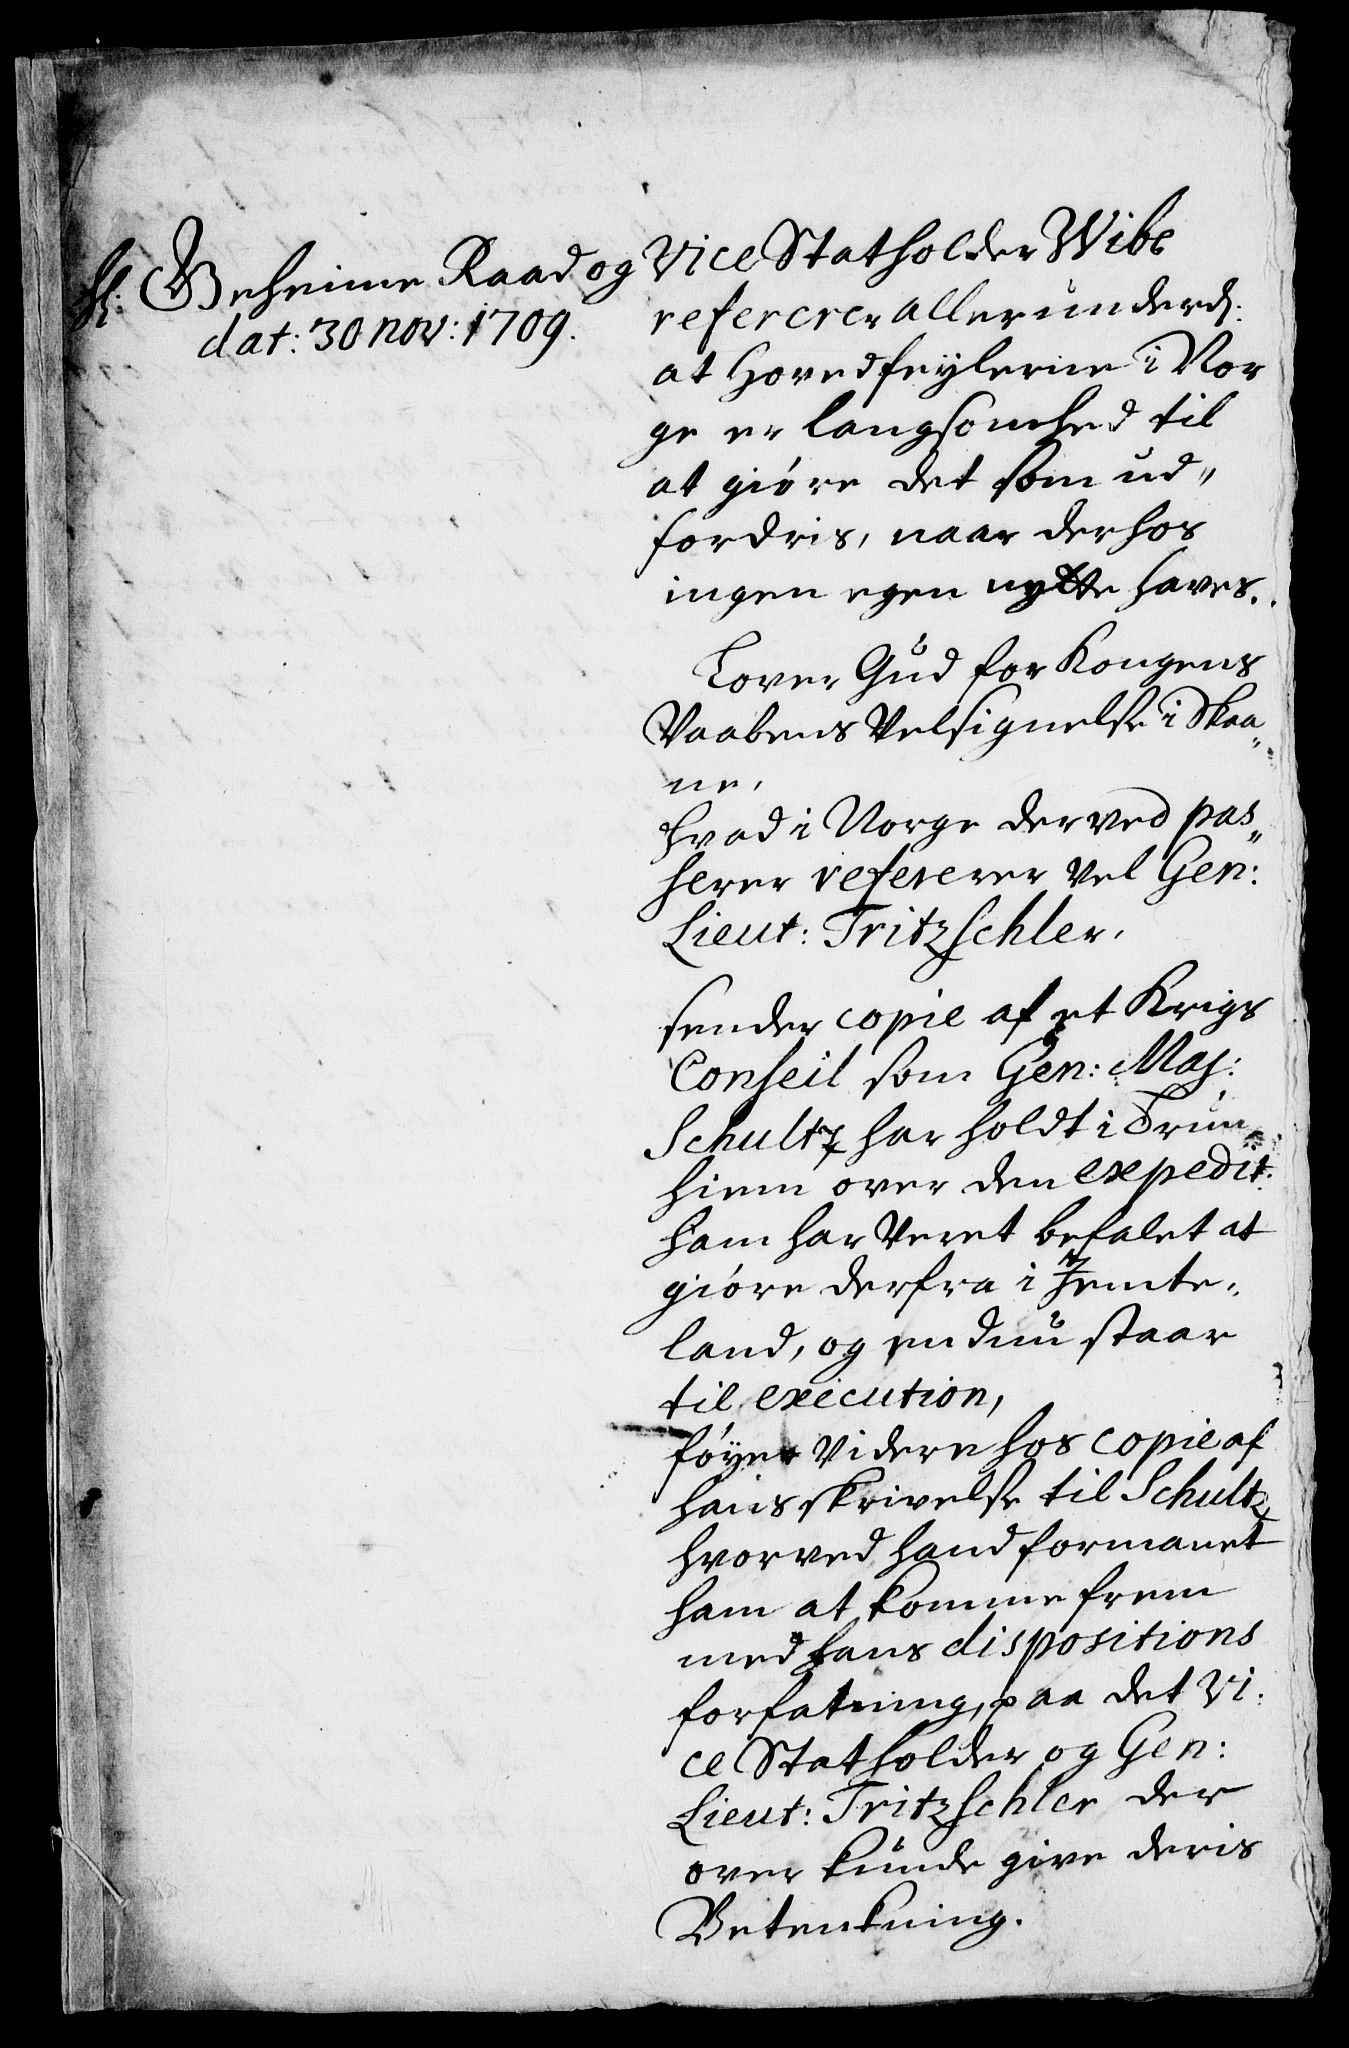 H: Geheime Raad og Vice Statholder Wibe
dat: 30 nov: 1709.
refererer allerunderd:
at Hovedfeylerne i Nor
ge er langsomhed til
at giöre det som ud„
fordris, naar derhos
ingen egen nytte haves.
Lover Gud for Kongens
Vaabens Velsignelse i Skaa„
ne.
hvad i Norge derved pas„
serer refererer vel Gen:
Lieut: Tritzschler.
sender copie af et Krigs
Conseil som Gen: Maj:
Schultz har holdt i Trun
hiem over den expedit:
ham har veret befalet at
giöre derfra i Jemte„
land, og endnu staar
til execution,
föyer videre hos copie af
hans skrivelse til Schultz
hvorved hand formanet
ham at komme frem
med hans dispositions
forfatning, paa det Vi„
ce Statholder og Gen:
Lieut: Tritzschler der
over kunde give deris
Betenkning.